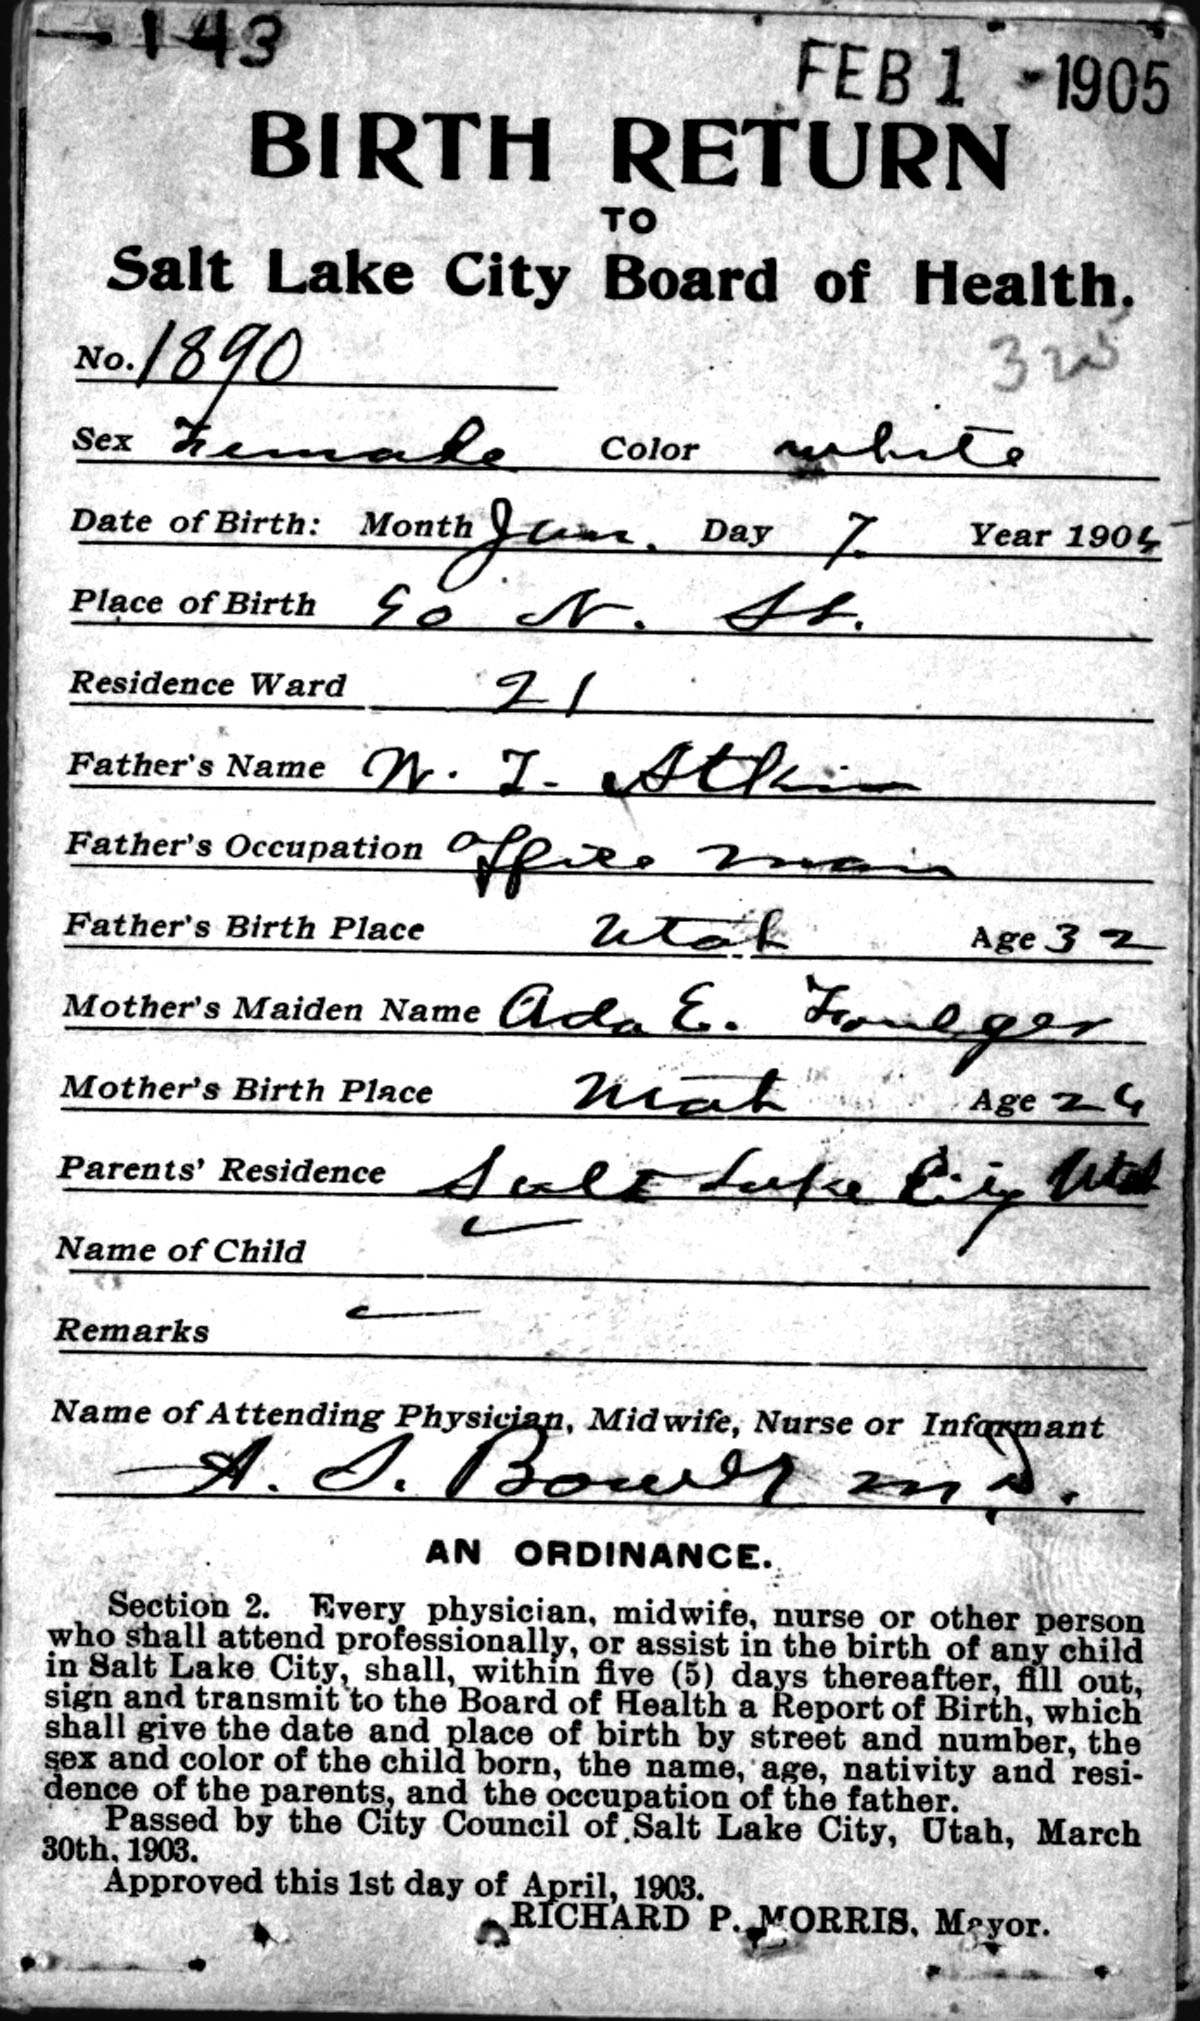 143
FEB 1 - 1905
BIRTH RETURN
TO
Salt Lake City Board of Health.
No. 1890
325
Sex Female Color white
Date of Birth: Month Jan. Day 7. Year 1905
Place of Birth N. St.
Residence Ward 21
Father's Name W. T. Atkin
Father's Occupation Office man
Father's Birth Place Utah Age 32
Mother's Maiden Name Ada E. Foulger
Mother's Birth Place Utah Age
Parents' Residence Salt Lake City Utah
Name of Child
Remarks
Name of Attending Physician, Midwife, Nurse or Informant
A. S. Bower M.D.
AN ORDINANCE.
Section 2. Every physician, midwife, nurse or other person
who shall attend professionally, or assist in the birth of any child
in Salt Lake City, shall, within five (5) days thereafter, fill out,
sign and transmit to the Board of Health a Report of Birth, which
shall give the date and place of birth by street and number, the
sex and color of the child born, the name, age, nativity and resi-
dence of the parents, and the occupation of the father.
Passed by the City Council of Salt Lake City, Utah, March
30th, 1903.
Approved this 1st day of April, 1903.
RICHARD P. MORRIS, Mayor.